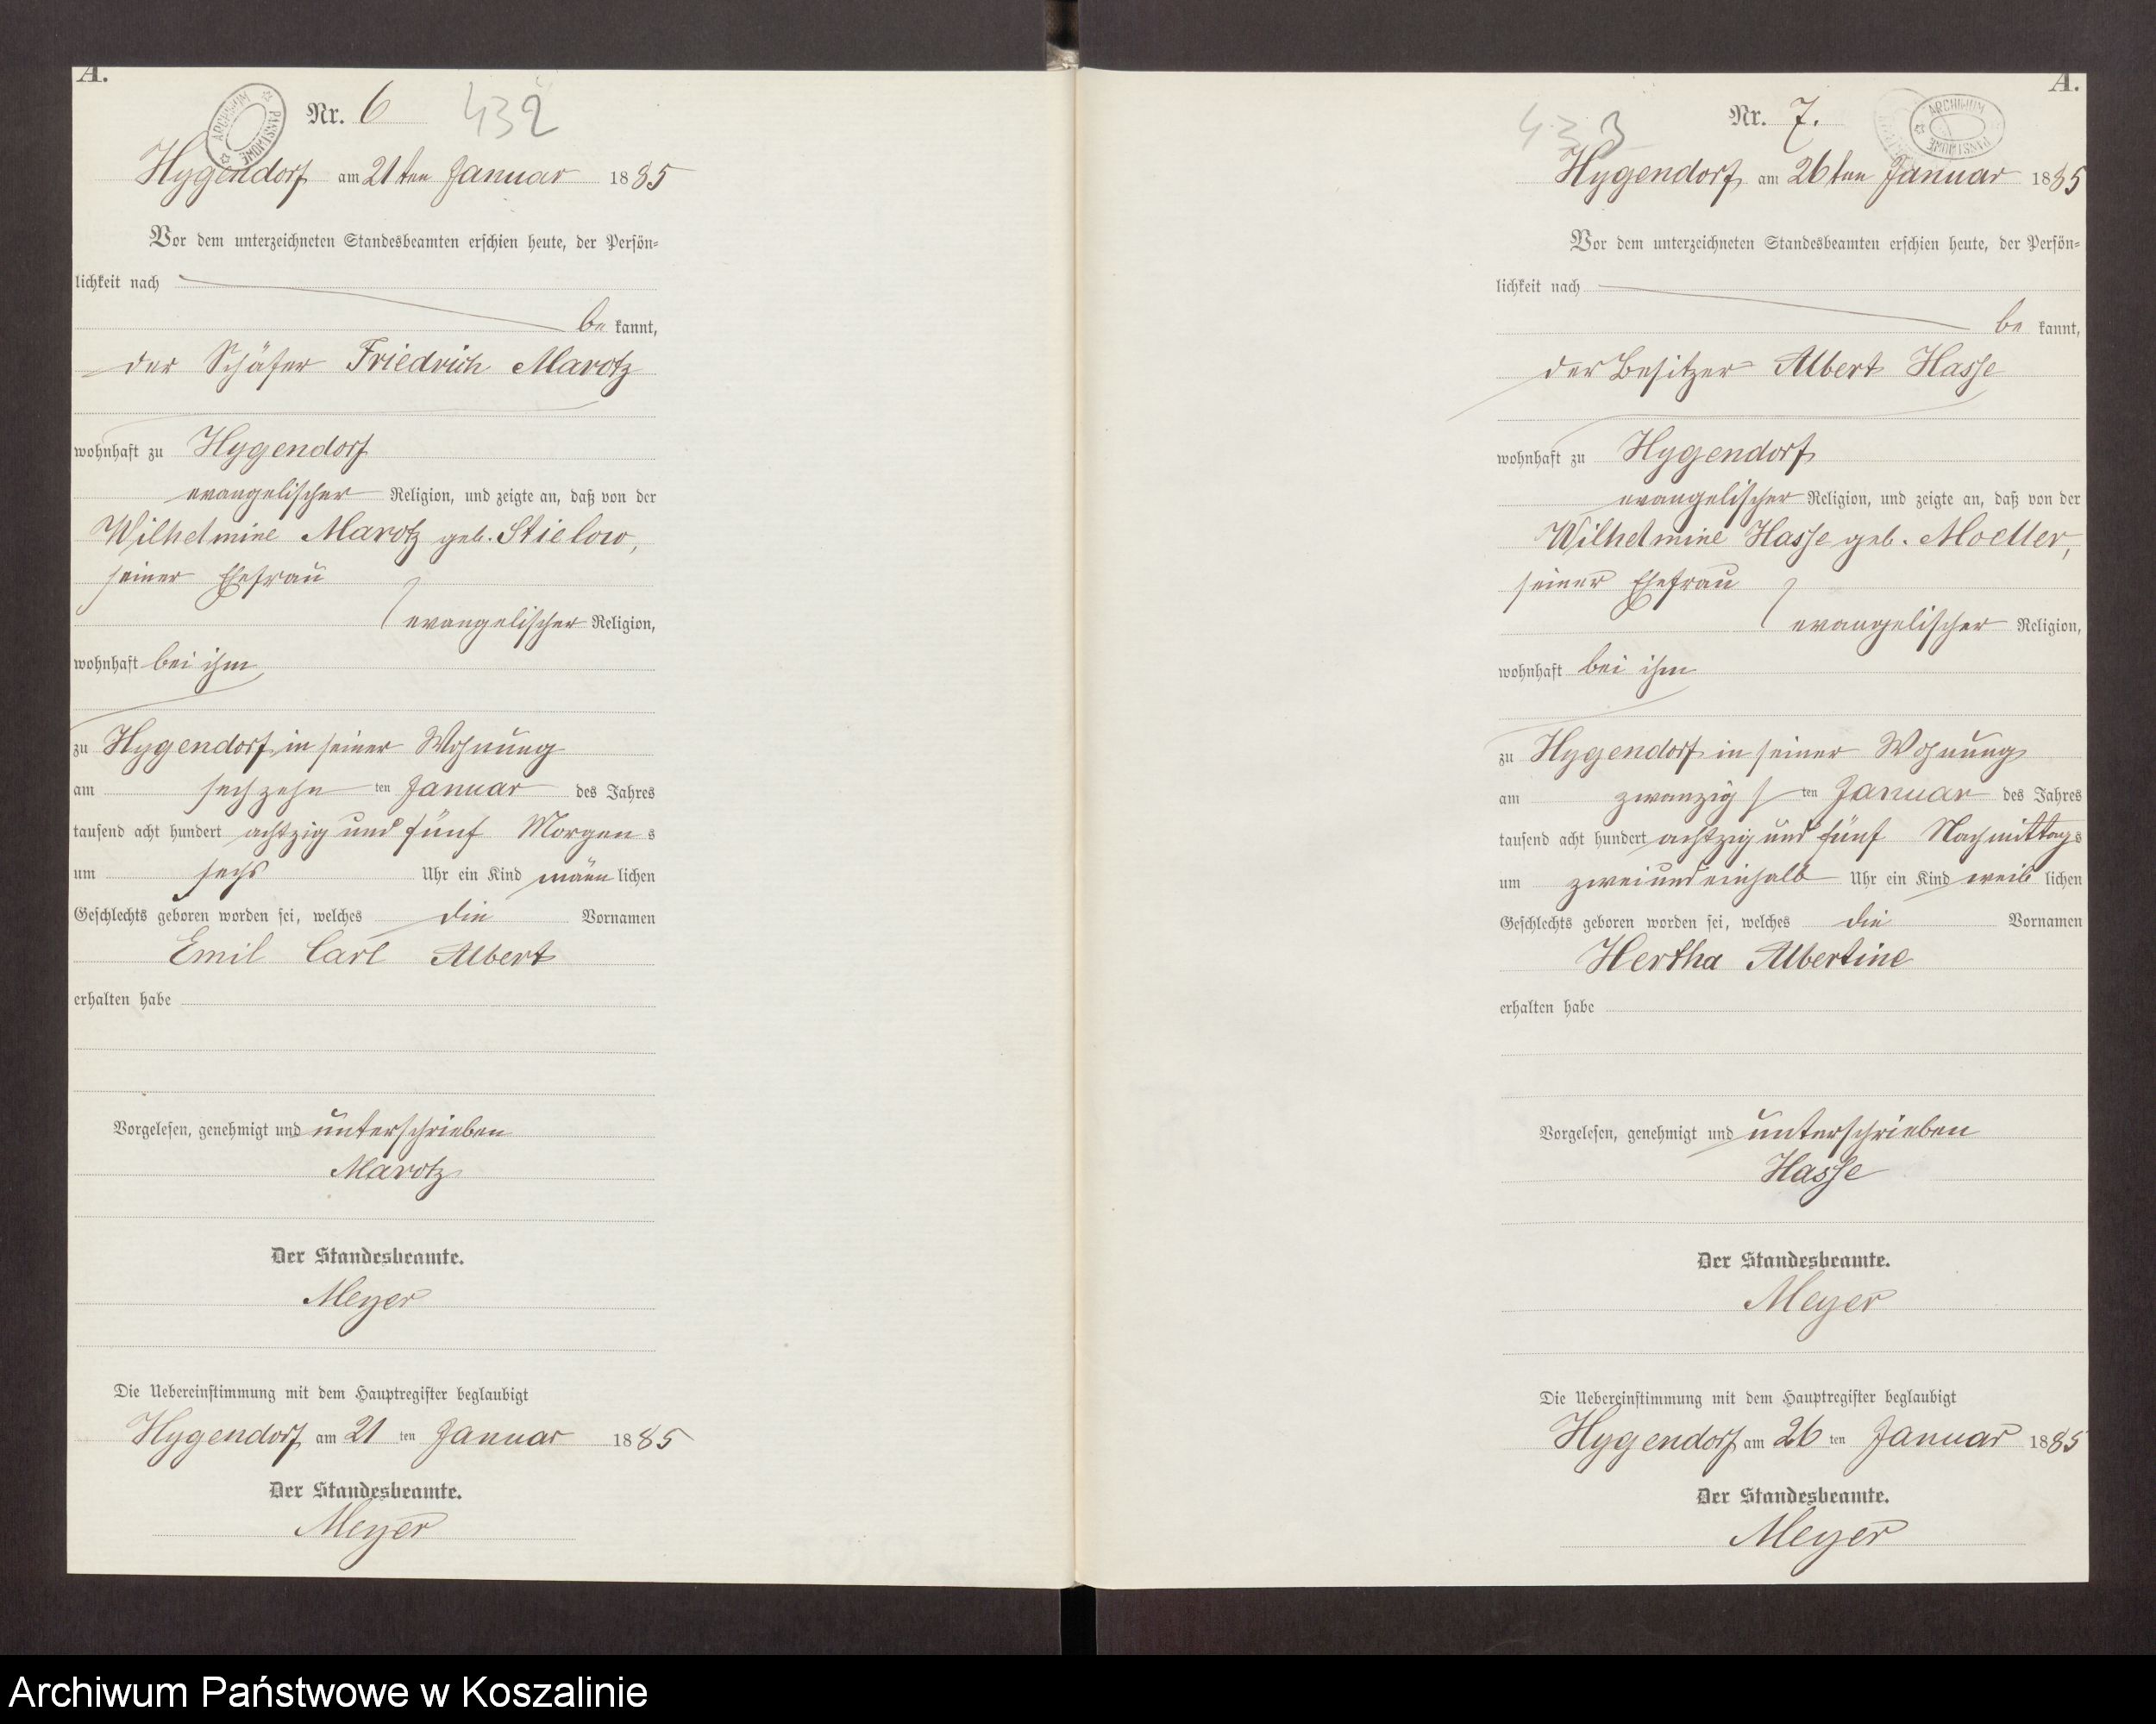 A.
ARCHIWUM PAŃSTWOWE
Nr. 6
432
Hygendorf am 21ten Januar 1885
Vor dem unterzeichneten Standesbeamten erschien heute, der Persön-
lichkeit nach
be kannt,
der Schäfer Friedrich Marotz
wohnhaft zu Hygendorf
evangelischer Religion, und zeigte an, daß von der
Wilhelmine Marotz geb. Stielow,
seiner Ehefrau
evangelischer Religion,
wohnhaft bei ihm
zu Hygendorf in seiner Wohnung
am sechzehn ten Januar des Jahres
tausend acht hundert achtzig und fünf Morgen s
um sechs Uhr ein Kind männ lichen
Geschlechts geboren worden sei, welches die Vornamen
Emil Carl Albert
erhalten habe
Vorgelesen, genehmigt und unterschrieben
Marotz
Der Standesbeamte.
Meyer
Die Uebereinstimmung mit dem Hauptregister beglaubigt
Hygendorf am 21 ten Januar 1885
Der Standesbeamte.
Meyer
A.
433
Nr. 7.
ARCHIWUM PAŃSTWOWE
Hygendorf am 26ten Januar 1885
Vor dem unterzeichneten Standesbeamten erschien heute, der Persön-
lichkeit nach
be kannt,
der Besitzer Albert Hasse
wohnhaft zu Hygendorf
evangelischer Religion, und zeigte an, daß von der
Wilhelmine Hasse geb. Moeller,
seiner Ehefrau
evangelischer Religion,
wohnhaft bei ihm
zu Hygendorf in seiner Wohnung
am zwanzigs ten Januar des Jahres
tausend acht hundert achtzig und fünf Nachmittag s
um zweiundeinhalb Uhr ein Kind weib lichen
Geschlechts geboren worden sei, welches die Vornamen
Hertha Albertine
erhalten habe
Vorgelesen, genehmigt und unterschrieben
Hasse
Der Standesbeamte.
Meyer
Die Uebereinstimmung mit dem Hauptregister beglaubigt
Hygendorf am 26 ten Januar 1885
Der Standesbeamte.
Meyer
Archiwum Państwowe w Koszalinie